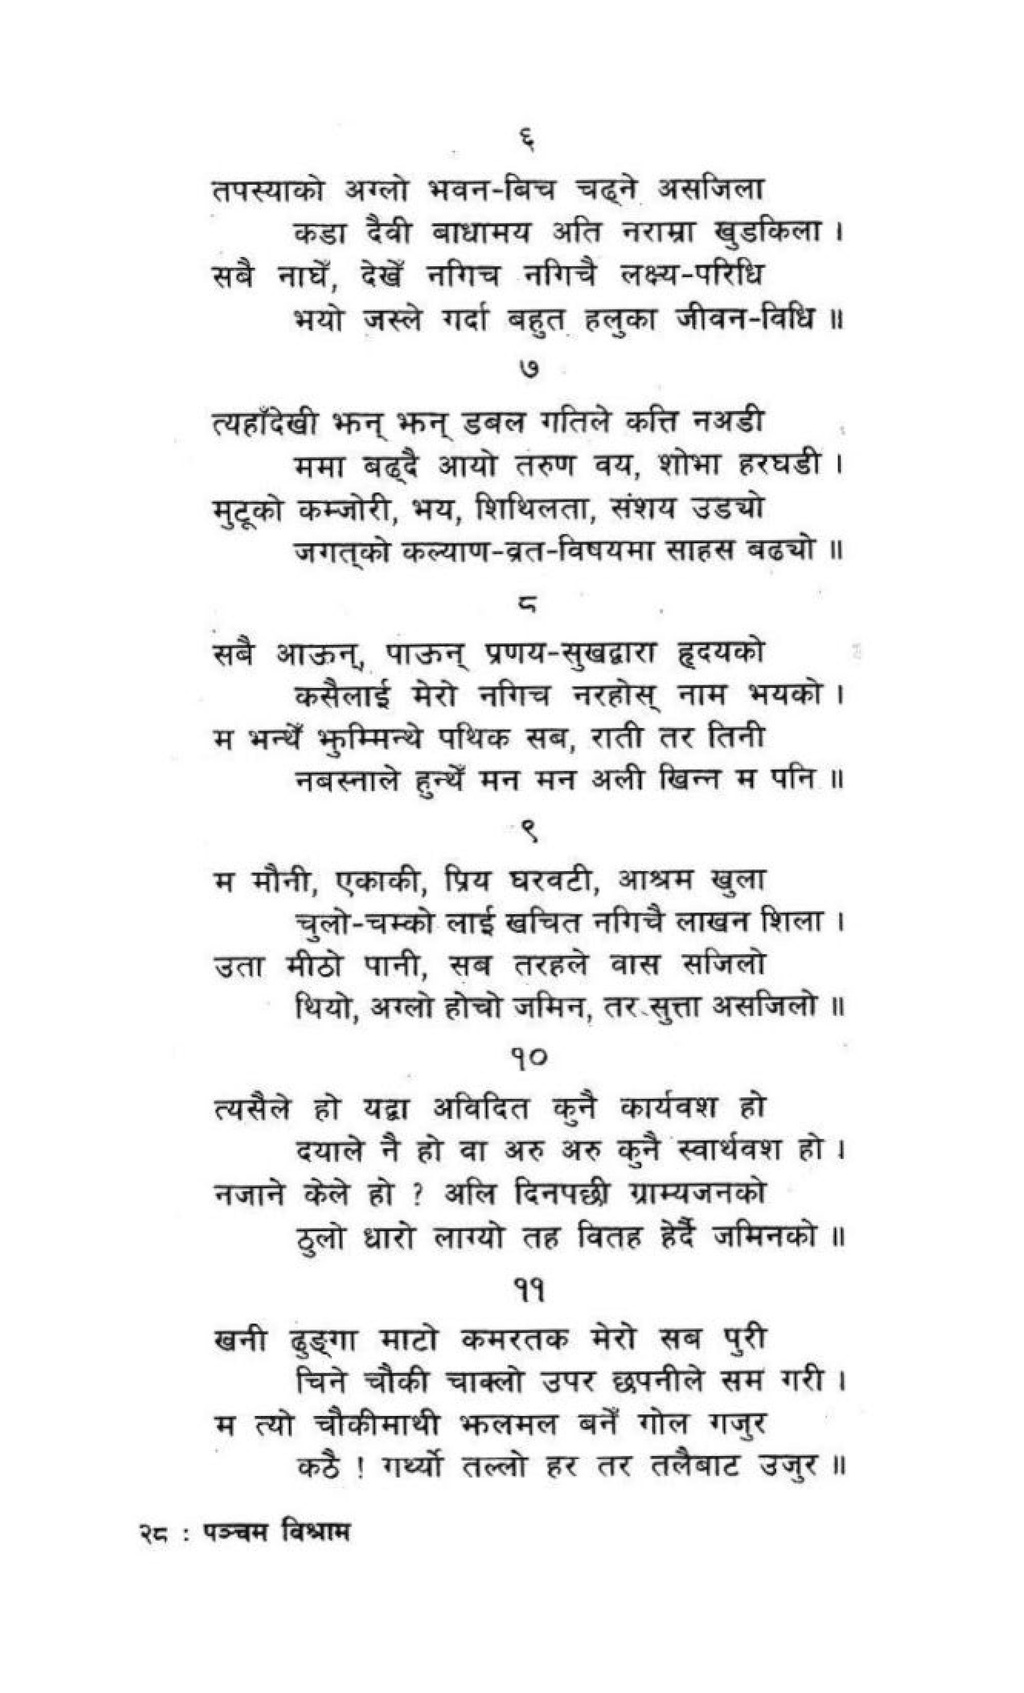 ६
तपस्याको अग्लो भवन-बिच चढ्ने असजिला
कडा दैवी बाधामय अति नराम्रा खुडकिला ।
सबै नाघेँ, देखेँ नगिच नगिचै लक्ष्य-परिधि
भयो जस्ले गर्दा बहुत हलुका जीवन-विधि ॥
७
त्यहाँदेखी झन् झन् डबल गतिले कत्ति नअडी
ममा बढ्दै आयो तरुण वय, शोभा हरघडी ।
मुटूको कम्जोरी, भय, शिथिलता, संशय उड्यो
जगत्को कल्याण-व्रत-विषयमा साहस बढ्यो ॥
८
सबै आऊन्, पाऊन् प्रणय-सुखद्वारा हृदयको
कसैलाई मेरो नगिच नरहोस् नाम भयको ।
म भन्थेँ झुम्मिन्थे पथिक सब, राती तर तिनी
नबस्नाले हुन्थेँ मन मन अली खिन्न म पनि ॥
९
म मौनी, एकाकी, प्रिय घरवटी, आश्रम खुला
चुलो-चम्को लाई खचित नगिचै लाखन शिला ।
उता मीठो पानी, सब तरहले वास सजिलो
थियो, अग्लो होचो जमिन, तर सुत्ता असजिलो ॥
१०
त्यसैले हो यद्वा अविदित कुनै कार्यवश हो
दयाले नै हो वा अरु अरु कुनै स्वार्थवश हो ।
नजाने केले हो ? अलि दिनपछी ग्राम्यजनको
ठुलो धारो लाग्यो तह वितह हेर्दै जमिनको ॥
११
खनी ढुङ्गा माटो कमरतक मेरो सब पुरी
चिने चौकी चाक्लो उपर छपनीले सम गरी ।
म त्यो चौकीमाथी झलमल बनेँ गोल गजुर
कठै ! गर्थ्यो तल्लो हर तर तलैबाट उजुर ॥
२८ : पञ्चम विश्राम